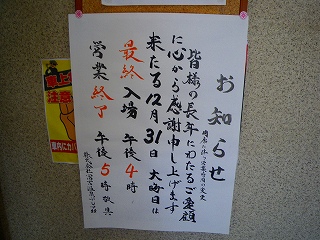 お知らせ
皆様の長年にわたるご愛顧
に心から感謝申し上げます
来たる12月31日大晦日は
最終入場 午後4時
営業終了 午後5時 敬具
注意